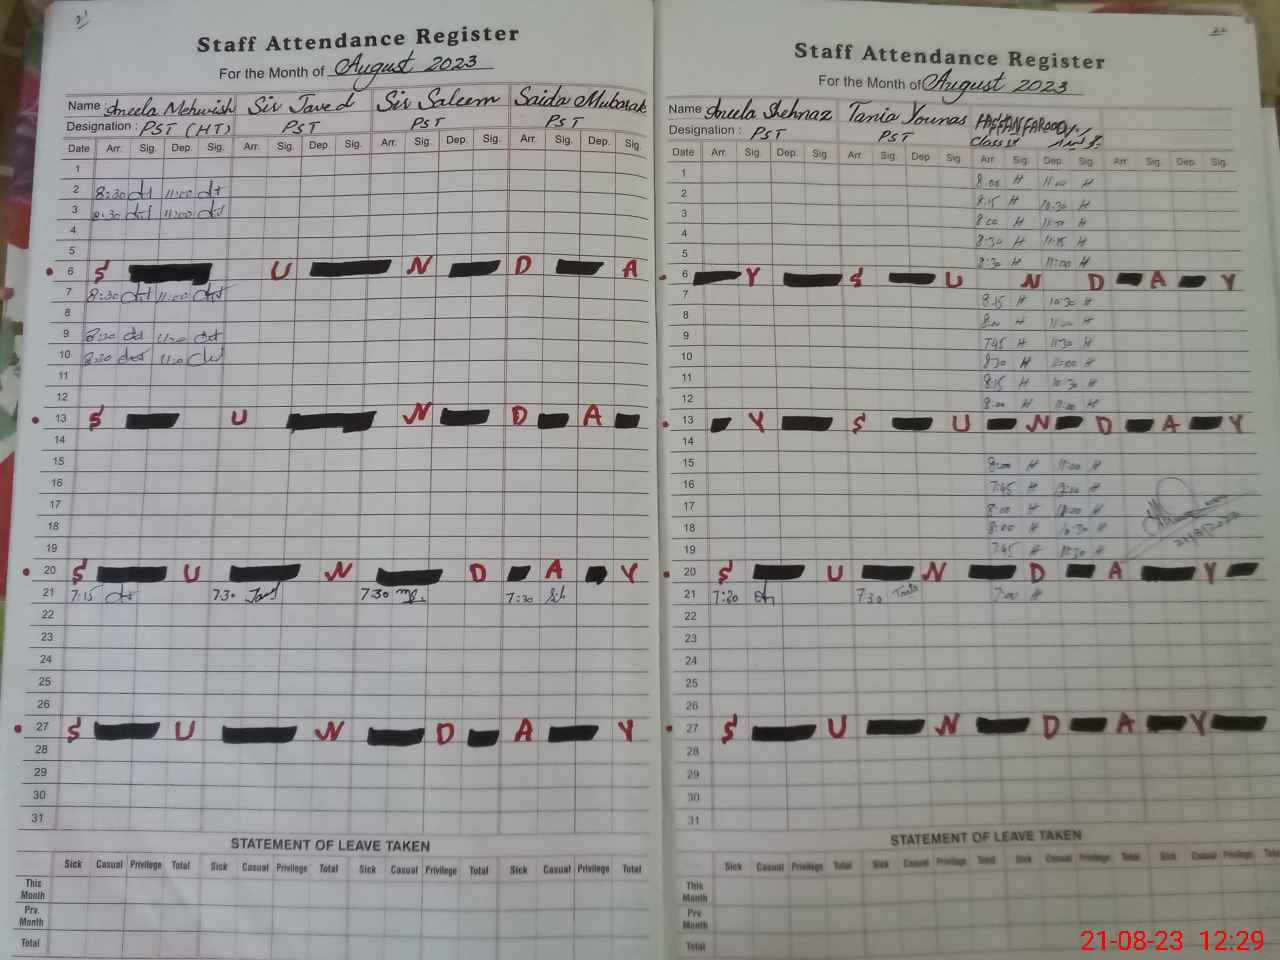 21
Staff Attendance Register
For the Month of August 2023
Name : Aneela Mehwish Sir Javed Sir Saleem Saida Mubarak
Designation : PST (HT) PST PST PST
Date Arr. Sig. Dep. Sig. Arr. Sig. Dep. Sig. Arr. Sig. Dep. Sig. Arr. Sig. Dep. Sig.
1
2 8:30 11:00
3 8:30 11:00
4
5
6 S U N D A
7 8:30 11:00
8
9 8:30 11:00
10 8:30 11:00
11
12
13 S U N D A
14
15
16
17
18
19
20 S U N D A Y
21 7:15 7:30 7:30 7:30
22
23
24
25
26
27 S U N D A Y
28
29
30
31
STATEMENT OF LEAVE TAKEN
Sick Casual Privilege Total Sick Casual Privilege Total Sick Casual Privilege Total Sick Casual Privilege Total
This Month
Prv. Month
Total
22
Staff Attendance Register
For the Month of August 2023
Name : Aneela Shehnaz Tania Younas
Designation : PST PST Class IV
Date Arr. Sig. Dep. Sig. Arr. Sig. Dep. Sig. Arr. Sig. Dep. Sig. Arr. Sig. Dep. Sig.
1 8:00 H 11:00 H
2 8:15 H 10:30 H
3 8:00 H H
4 8:30 H 11:15 H
5 8:30 H 11:00 H
6 Y S U N D A Y
7 8:15 H 10:30 H
8 8:00 H 11:00 H
9 7:45 H 11:30 H
10 8:30 H H
11 8:15 H 10:30 H
12 8:00 H 11:00 H
13 Y S U N D A Y
14
15 8:00 H 11:00 H
16 7:45 H 12:00 H
17 8:00 H H
18 8:00 H 10:30 H
19 7:45 H 11:30 H
20 S U N D A Y
21 7:30 7:30 Tania 7:00 H
22
23
24
25
26
27 S U N D A Y
28
29
30
31
STATEMENT OF LEAVE TAKEN
Sick Casual Privilege Total Sick Casual Privilege Total Sick Casual Privilege Total Sick Casual Privilege Total
This Month
Prv. Month
Total
21-08-23 12:29